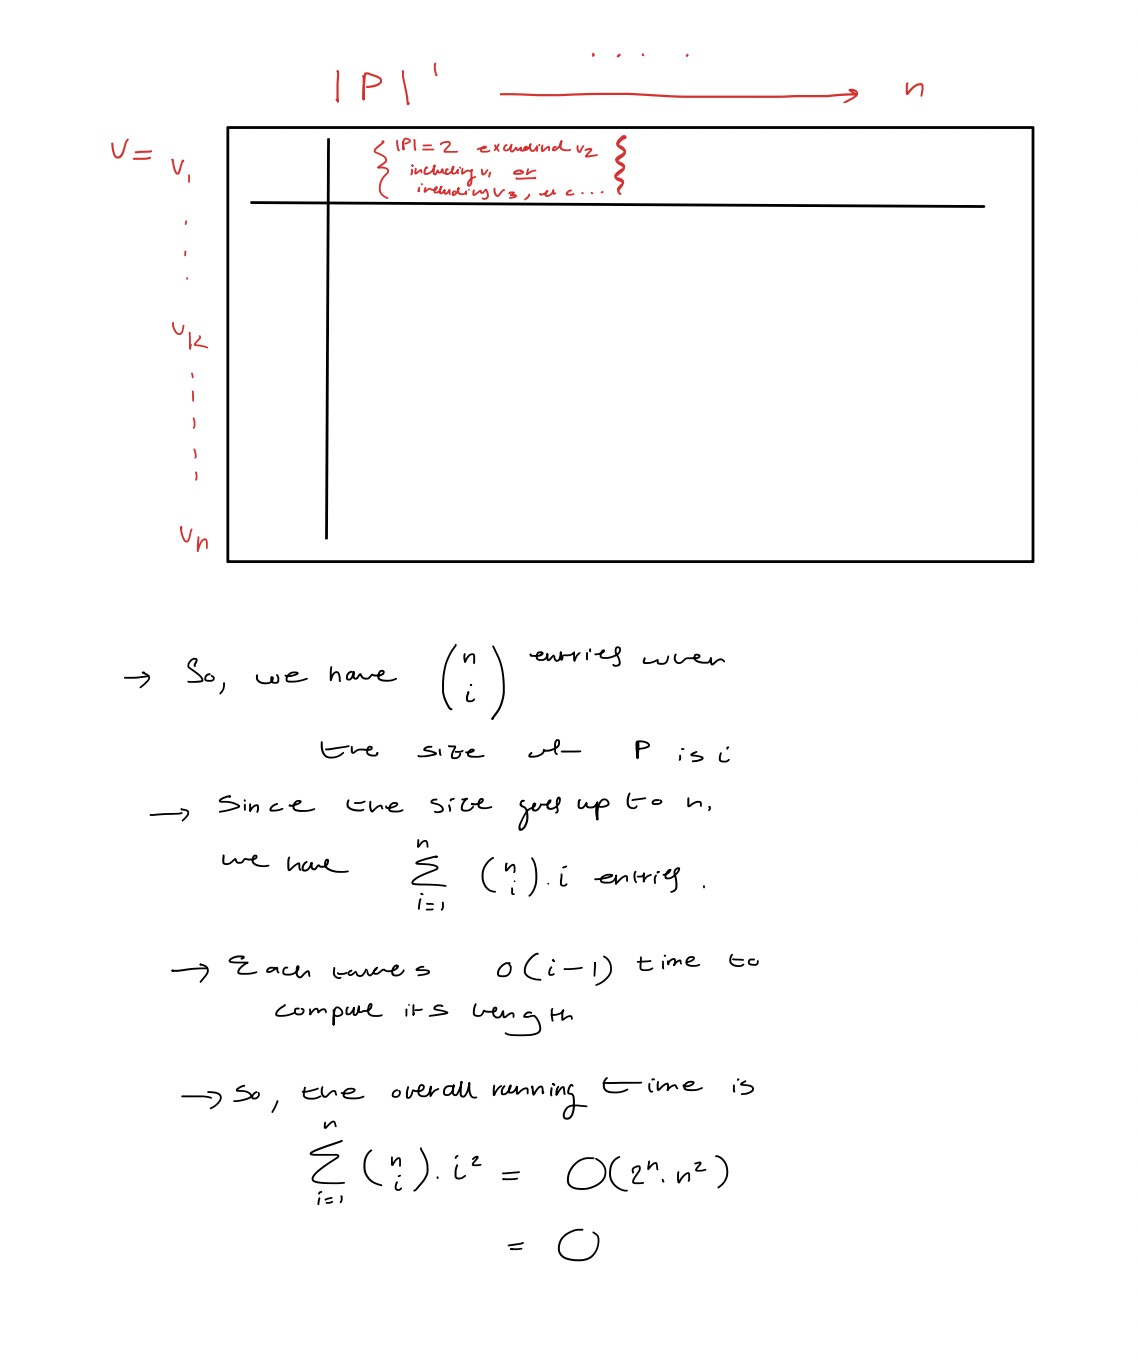 . . . .
|P| 1 → n
V = v₁
{ |P| = 2 excludind v₂ }
including v₁ or
including v₃, etc...
.
.
.
vₖ
vₙ
→ So, we have (n i) entries when
the size of P is i
→ Since the size goes up to n,
we have ∑ⁿᵢ₌₁ (n i) . i entries .
→ Each takes O(i-1) time to
compute its length
→ So, the overall running time is
∑ⁿᵢ₌₁ (n i) . i² = O(2ⁿ . n²)
= O